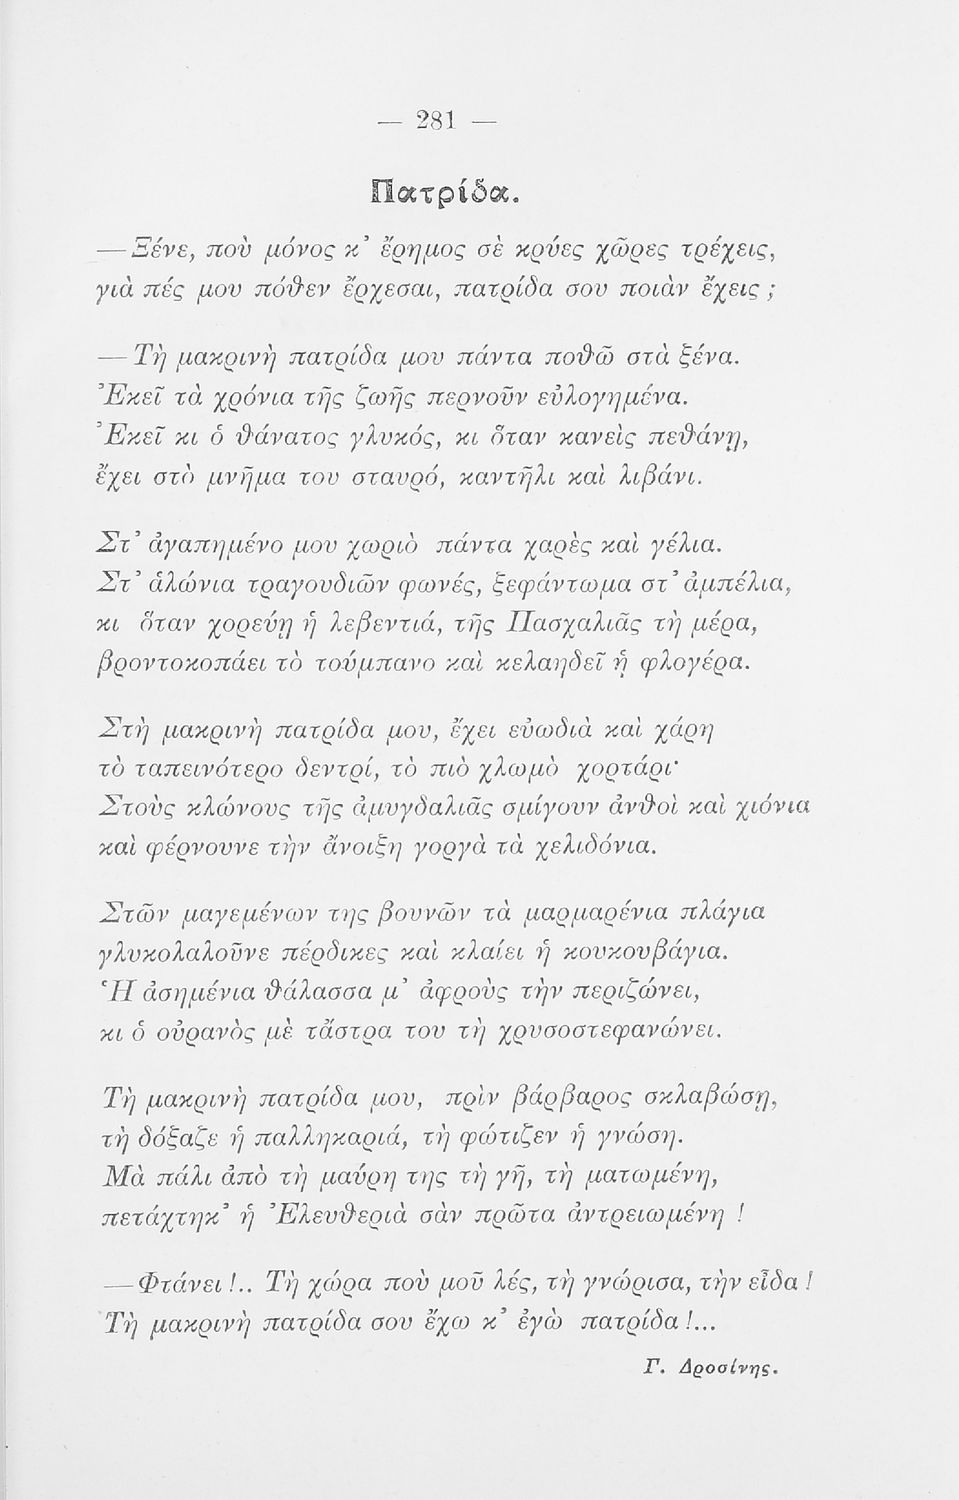 — 281 —
Πατρίδα.
— Ξένε, ποὺ μόνος κ’ ἔρημος σὲ κρύες χῶρες τρέχεις,
γιὰ πές μου πόθεν ἔρχεσαι, πατρίδα σου ποιὰν ἔχεις ;
— Τὴ μακρινὴ πατρίδα μου πάντα ποθῶ στὰ ξένα.
Ἐκεῖ τὰ χρόνια τῆς ζωῆς περνοῦν εὐλογημένα.
Ἐκεῖ κι ὁ θάνατος γλυκός, κι ὅταν κανεὶς πεθάνῃ,
ἔχει στὸ μνῆμα του σταυρό, καντῆλι καὶ λιβάνι.
Στ’ ἀγαπημένο μου χωριὸ πάντα χαρὲς καὶ γέλια.
Στ’ ἁλώνια τραγουδιῶν φωνές, ξεφάντωμα στ’ ἀμπέλια,
κι ὅταν χορεύῃ ἡ λεβεντιά, τῆς Πασχαλιᾶς τὴ μέρα,
βροντοκοπάει τὸ τούμπανο καὶ κελαηδεῖ ἡ φλογέρα.
Στὴ μακρινὴ πατρίδα μου, ἔχει εὐωδιὰ καὶ χάρη
τὸ ταπεινότερο δεντρί, τὸ πιὸ χλωμὸ χορτάρι·
Στοὺς κλώνους τῆς ἀμυγδαλιᾶς σμίγουν ἀνθοὶ καὶ χιόνια
καὶ φέρνουνε τὴν ἄνοιξη γοργὰ τὰ χελιδόνια.
Στῶν μαγεμένων της βουνῶν τὰ μαρμαρένια πλάγια
γλυκολαλοῦνε πέρδικες καὶ κλαίει ἡ κουκουβάγια.
Ἡ ἀσημένια θάλασσα μ’ ἀφροὺς τὴν περιζώνει,
κι ὁ οὐρανὸς μὲ τἄστρα του τὴ χρυσοστεφανώνει.
Τὴ μακρινὴ πατρίδα μου, πρὶν βάρβαρος σκλαβώσῃ,
τὴ δόξαζε ἡ παλληκαριά, τὴ φώτιζεν ἡ γνώση.
Μὰ πάλι ἀπὸ τὴ μαύρη της τὴ γῆ, τὴ ματωμένη,
πετάχτηκ’ ἡ Ἐλευθεριὰ σὰν πρῶτα ἀντρειωμένη !
— Φτάνει !.. Τὴ χώρα ποὺ μοῦ λές, τὴ γνώρισα, τὴν εἶδα !
Τὴ μακρινὴ πατρίδα σου ἔχω κ’ ἐγὼ πατρίδα !...
Γ. Δροσίνης.